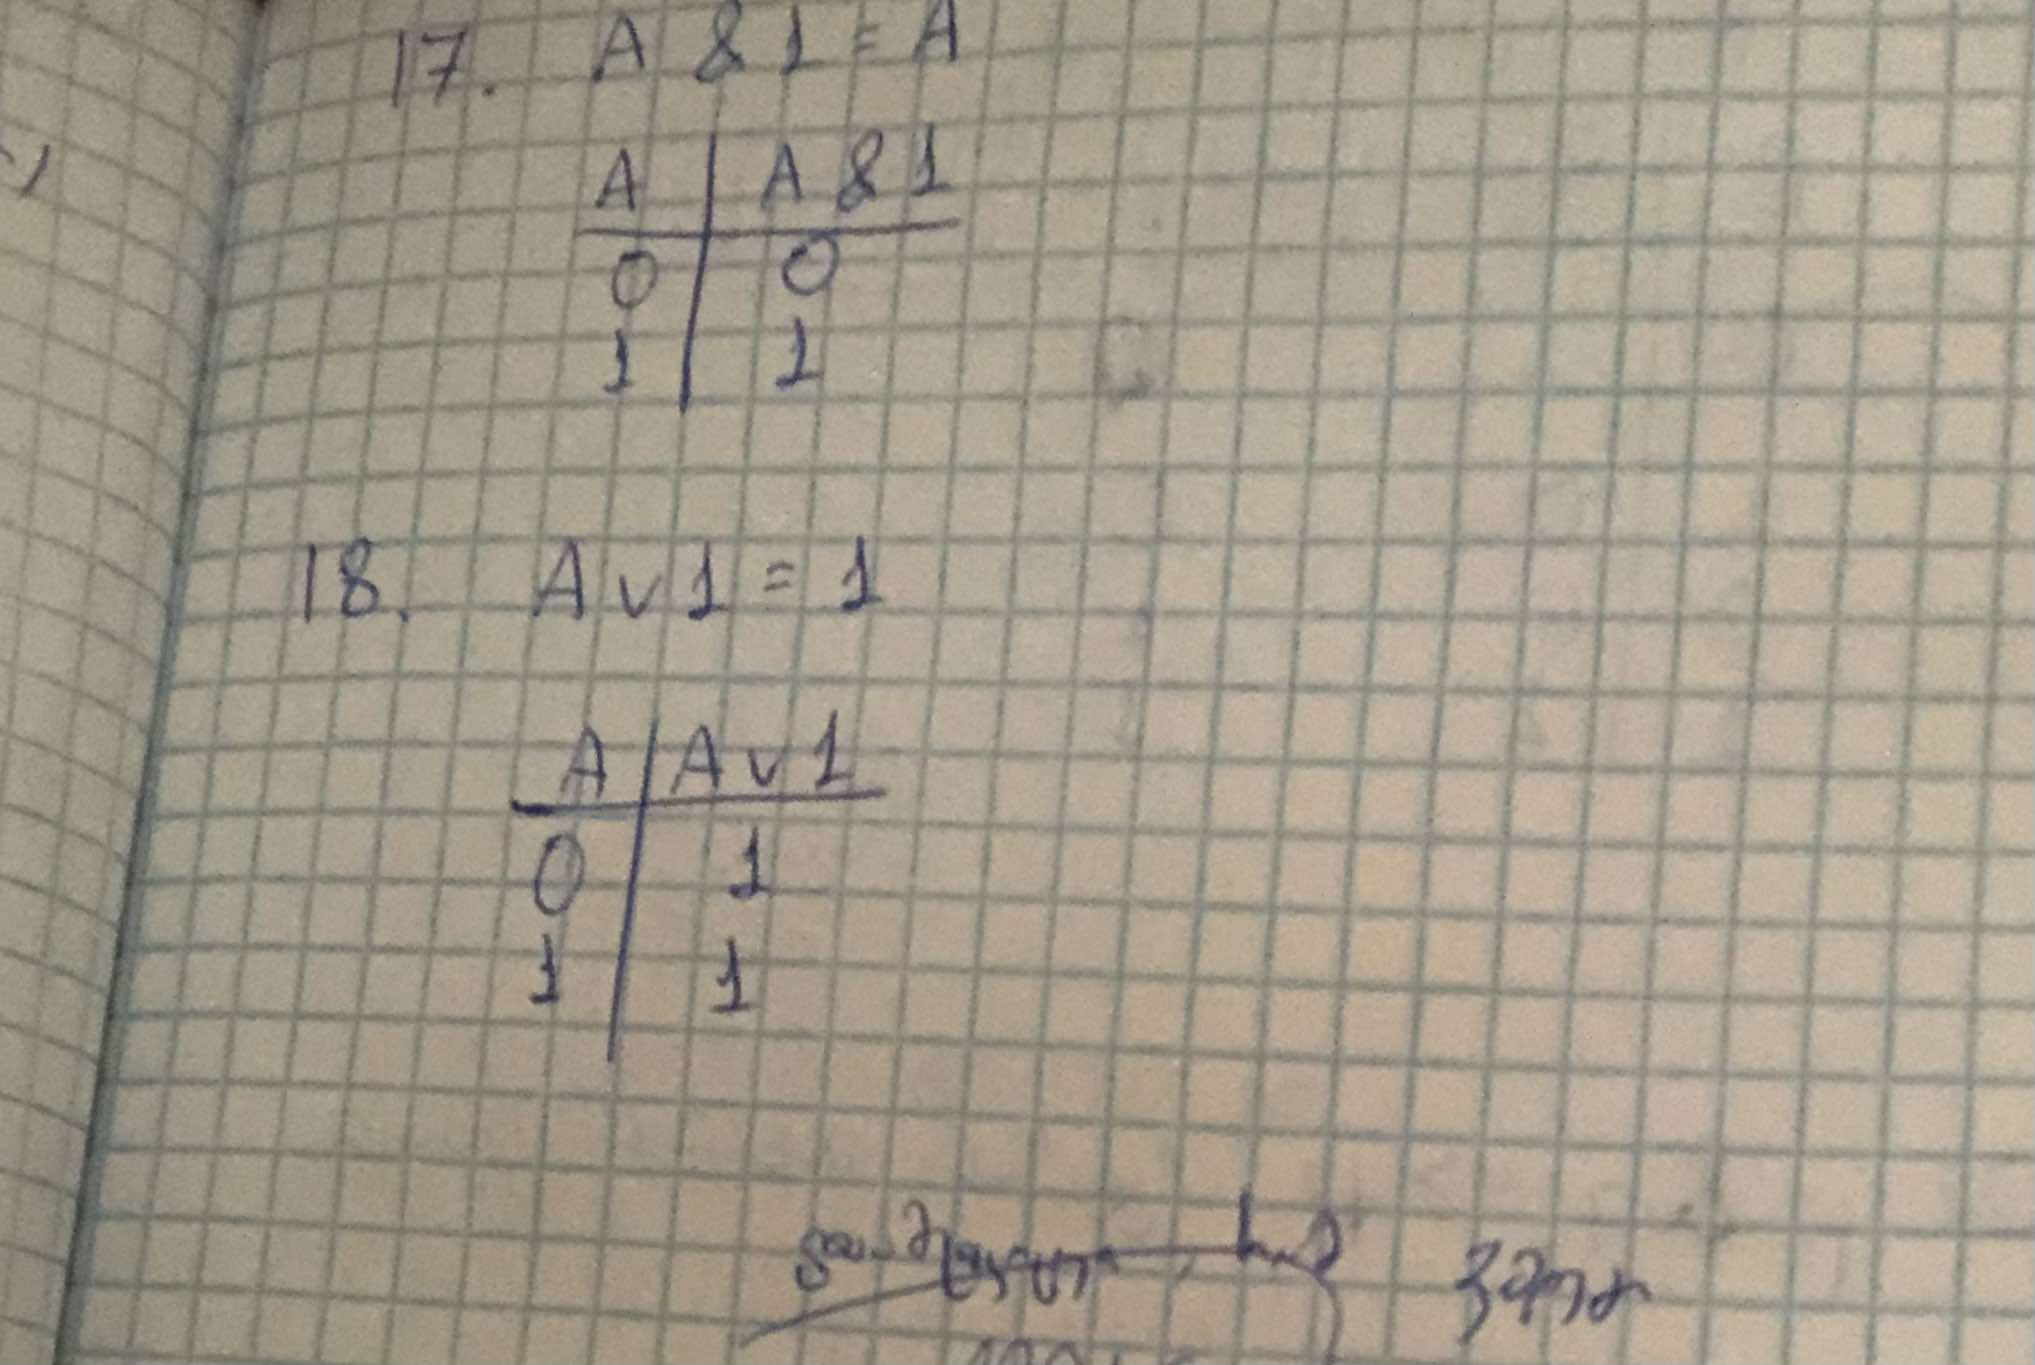 17. A & 1 = A
A | A & 1
0 | 0
1 | 1
18. A ∨ 1 = 1
A | A ∨ 1
0 | 1
1 | 1